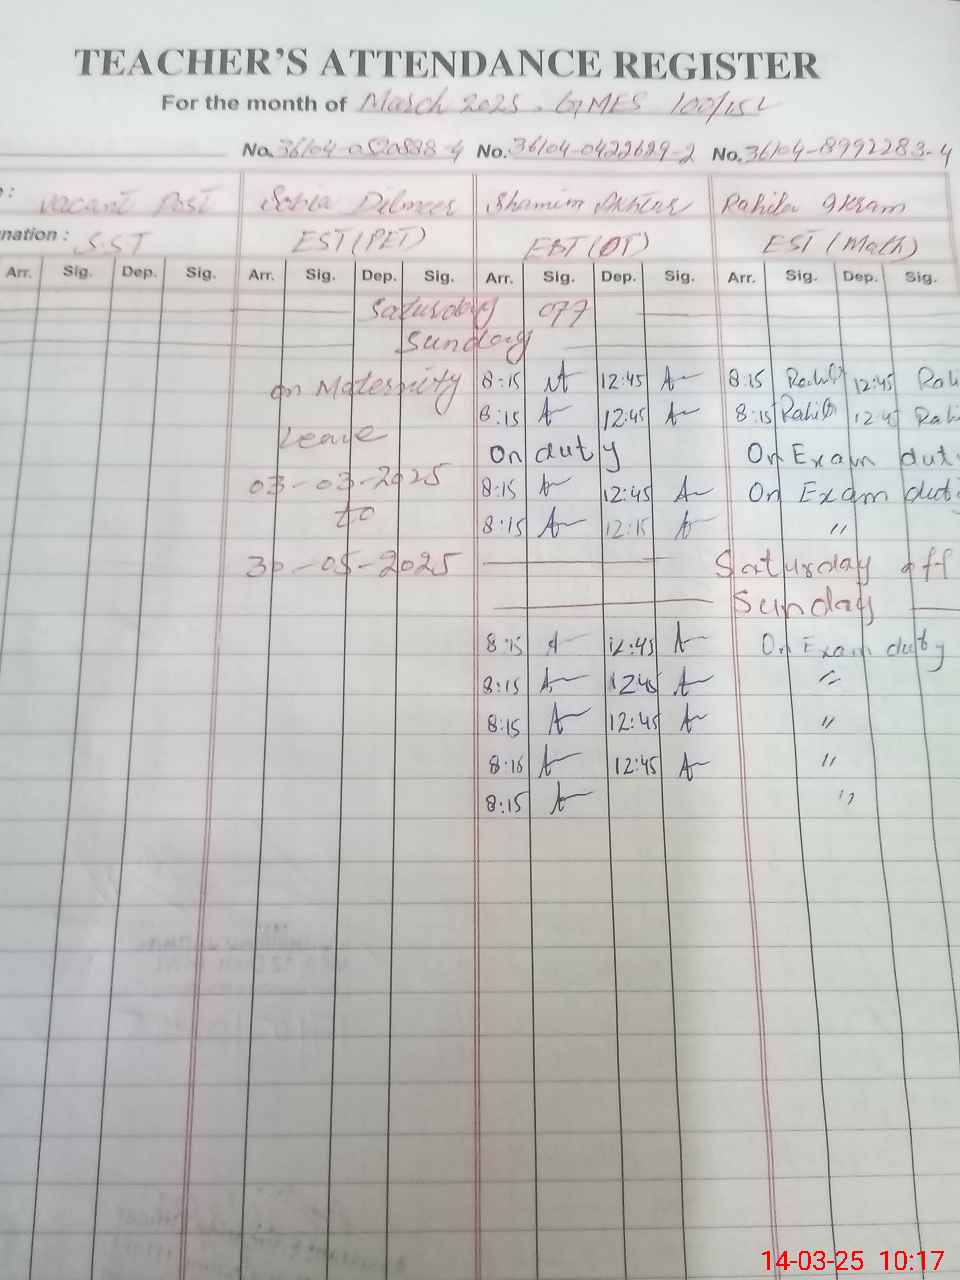 TEACHER'S ATTENDANCE REGISTER
For the month of March 2025. GMES 100/15L
No. 36104-0520888-4 No. 36104-0422629-2 No. 36104-8992283-4
: Vacant Post Sobia Dilmeer Shamim Akhtar Rahila Akram
nation : S.S.T EST (PET) EST (DT) EST (Math)
Arr. Sig. Dep. Sig. Arr. Sig. Dep. Sig. Arr. Sig. Dep. Sig. Arr. Sig. Dep. Sig.
Saturday off
Sunday
on Maternity 8:15 12:45 8:15 Rahila 12:45 Rah
8:15 12:45 8:15 Rahila 12:45 Rahi
Leave On duty On Exam duty
03-03-2025 8:15 12:45 On Exam duty
to 8:15 12:15 "
30-05-2025 Saturday off
Sunday
8:15 12:45 On Exam duty
8:15 12:45 "
8:15 12:45 "
8:16 12:45 "
8:15 "
14-03-25 10:17